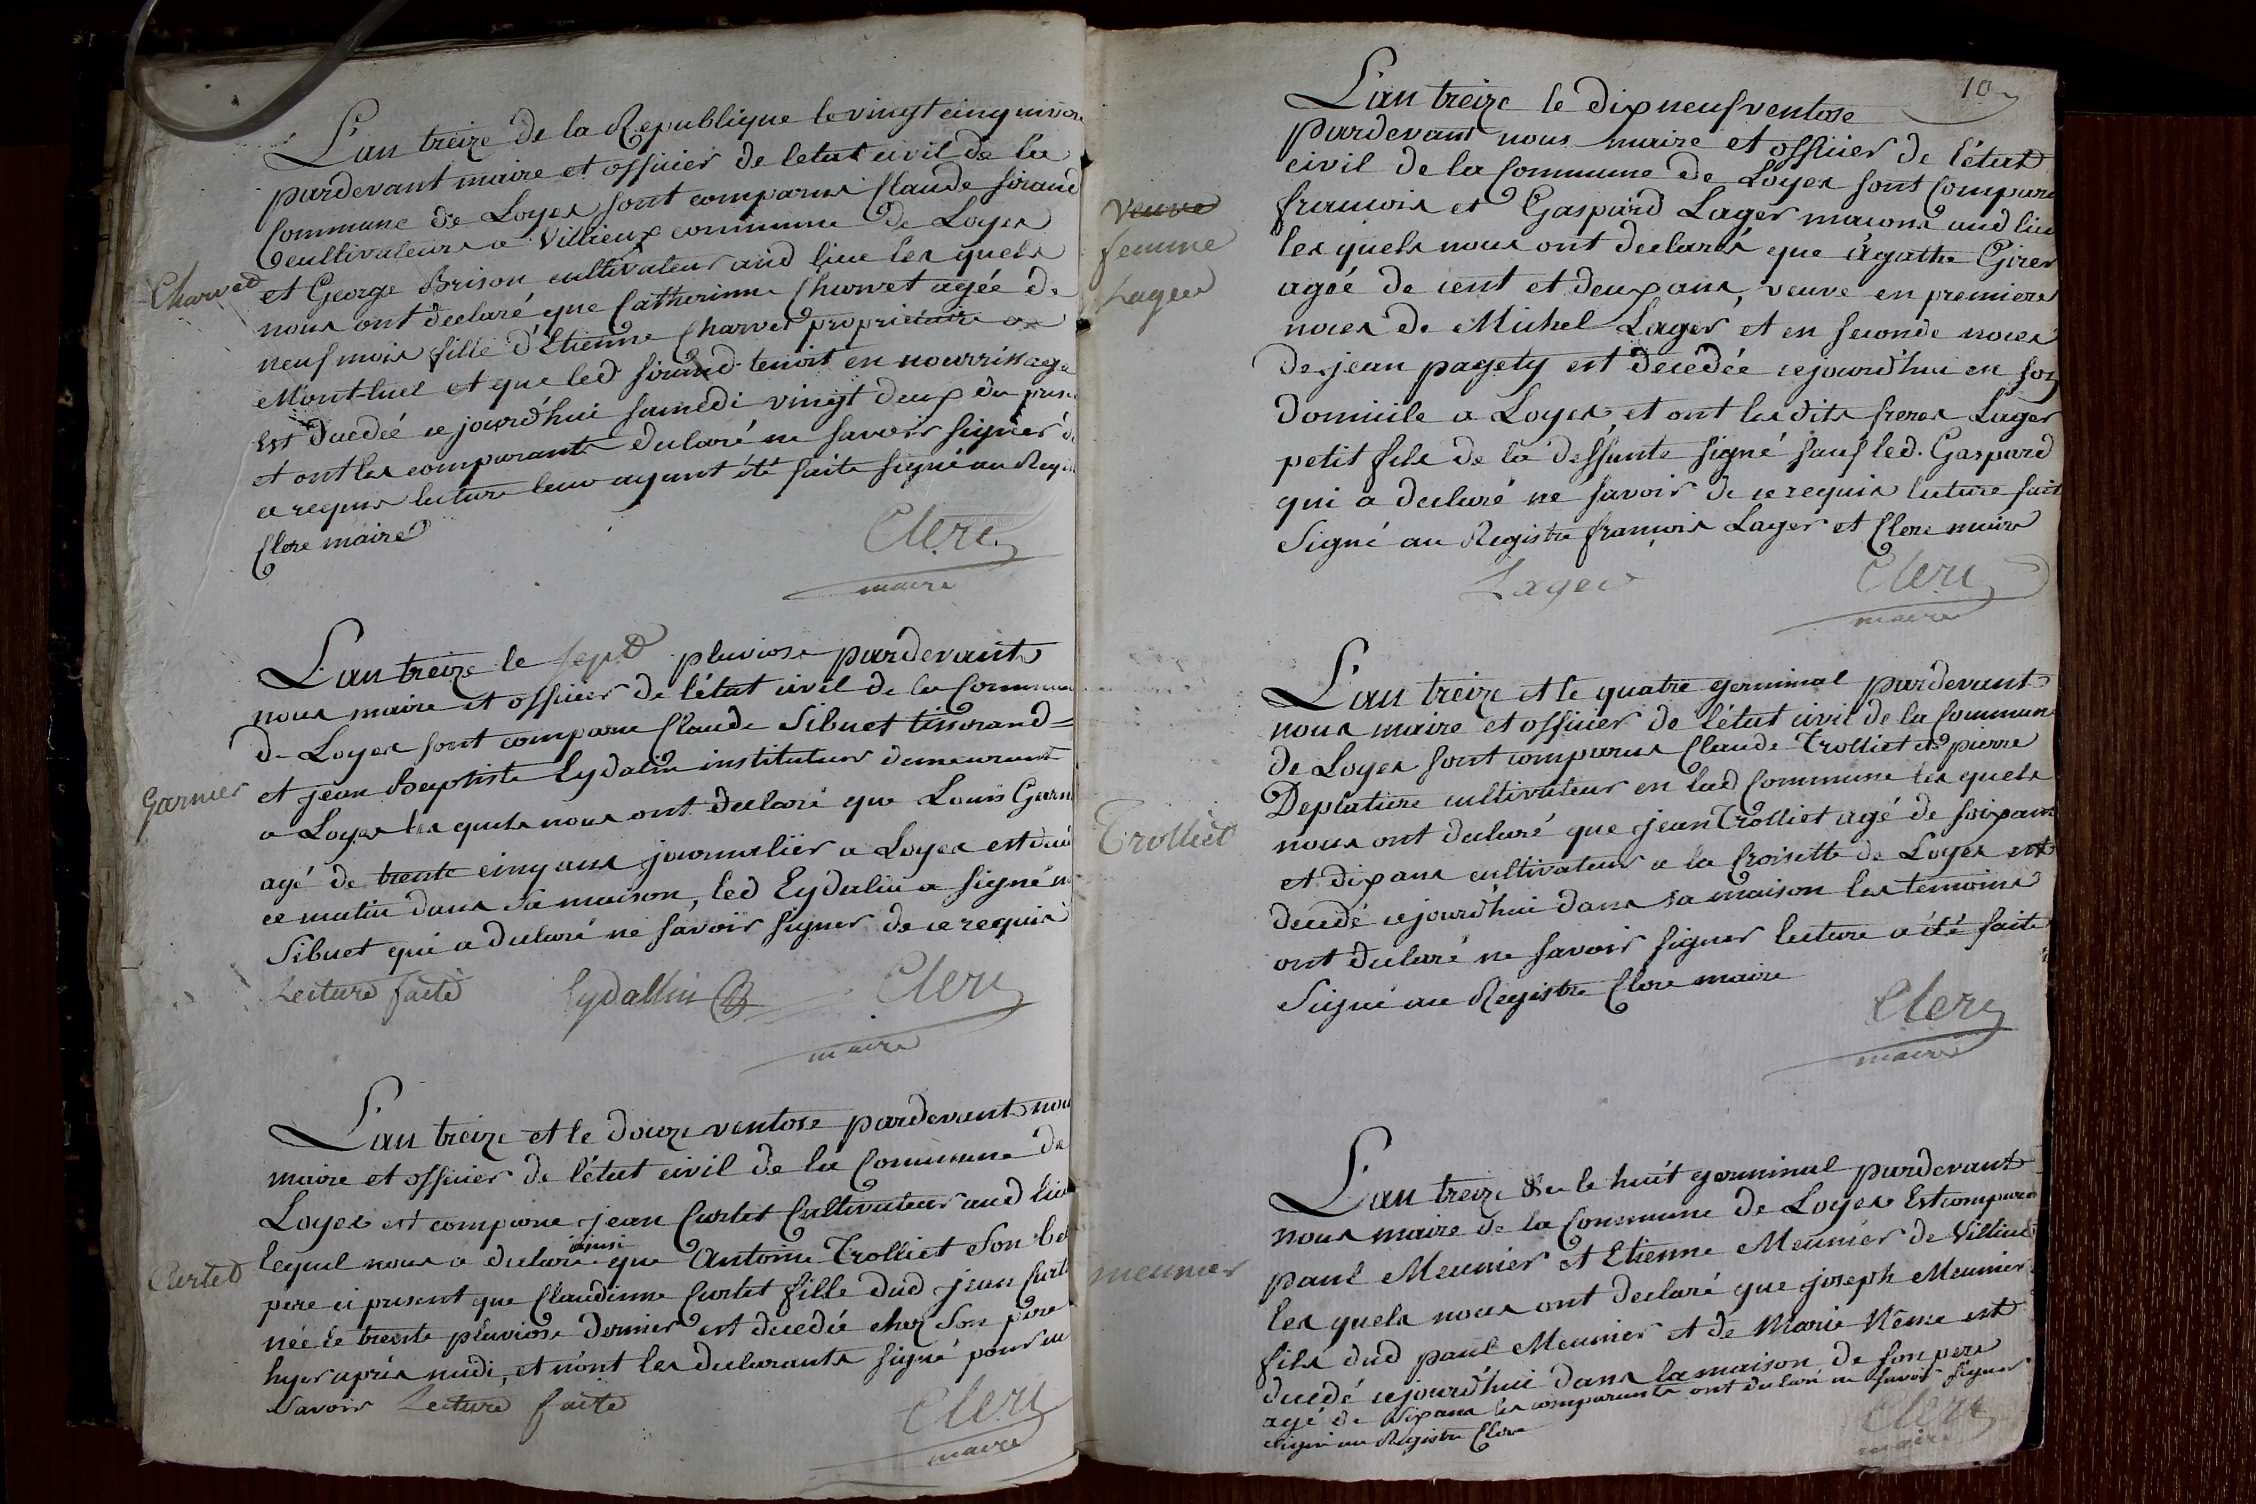 L'an treize de la Republique le vingt cinq nivose
pardevant maire et officier de l'etat civil de la
Commune de Loyes sont comparus Claude Siraud
cultivateurs a Villieux commune de Loyes
Charvet
et George Brison cultivateur aud lieu les quels
nous ont declaré que Catherinne Charvet agée de
neuf mois fille d'Etienne Charvet propriétaire a
Mont-luel et que led Siraud tenoit en nourrissage
est decedée ce jourd'hui samedi vingt deux du
et ont les comparants declaré ne savoir signer de
ce requis lecture leur ayant été faite signé au Regis
Clerc maire
Clerc
maire
L'an treize le sept pluviose pardevant
nous maire et officier de l'état civil de la Commune
de Loyes sont comparu Claude Sibuet tisserand
et jean Baptiste Eydalin instituteur demeurant
Garnier
a Loyes les quels nous ont declaré que Louis Garn
agé de trente cinq ans journalier a Loyes est decé
ce matin dans sa maison, led Eydalin a signé n
Sibuet qui a declaré ne savoir signer de ce requis
Lecture faite
Eydallin
Clerc
maire
L'an treize et le douze ventose pardevant nou
maire et officier de l'état civil de la Commune de
Loyes est comparu jean Curtet Cultivateur aud lieu
ainsi
lequel nous a declaré que Antoine Trolliet son be
Curtet
pere ci present que Claudinne Curtet fille dud jean Curt
née le trente pluviose dernier est decedée chez son père
hyer après midi, et n'ont les declarants signé pour ne
savoir Lecture faite
Clerc
maire
10
L'an treize le dix neuf ventose
pardevant nous maire et officier de l'état
civil de la Commune de Loyes sont Compar
veuve
francois et Gaspard Lager macons aud lieu
femme
les quels nous ont declaré que Agathe Girer
Lager
agée de cent et deux ans, veuve en premiere
noces de Michel Lager et en seconde noces
de jean pagety est decedée cejourd'hui en son
domicile a Loyes, et ont les dits freres Lager
petit fils de la deffunte signé sauf led. Gaspard
qui a declaré ne savoir de ce requis lecture fait
Signé au Registre francois Lager et Clerc maire
Lager
Clerc
maire
L'an treize et le quatre germinal pardevant
nous maire et officier de l'état civil de la Commune
de Loyes sont comparus Claude Trolliet et pierre
Deplatiere cultivateur en lad Commune les quels
Trolliet
nous ont declaré que jean Trolliet agé de soixant
et dix ans cultivateur a la Croisette de Loyes est
decedé cejourd'hui dans sa maison les temoins
ont declaré ne savoir signer lecture a été faite
Signé au Registre Clerc maire
Clerc
maire
L'an treize le huit germinal pardevant
nous maire de la Commune de Loyes Est comparu
paul Meunier et Etienne Meunier de Villieux
meunier
les quels nous ont declaré que joseph Meunier
fils dud paul Meunier et de Marie Nême est
decedé cejourd'hui dans la maison de son pere
agé de dix ans les comparants ont declaré ne savoir signer
signé au Registre Clerc
Clerc
maire